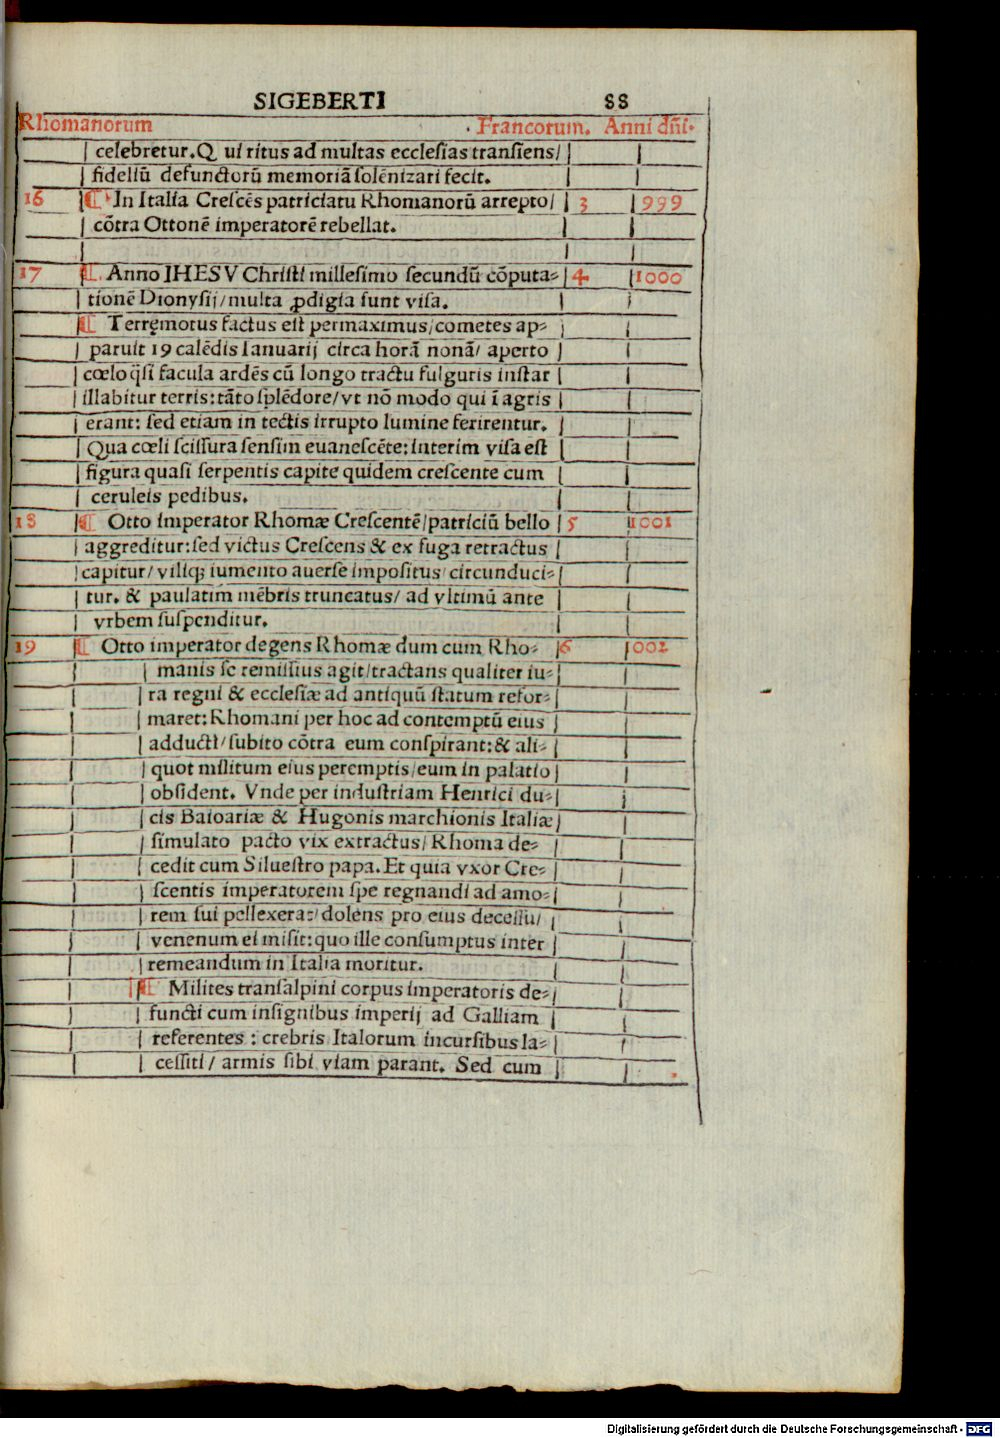 SIGEBERTI 88
Rhomanorum Francorum. Anni dñi.
celebretur. Q ui ritus ad multas ecclesias transiens/
fideliũ defunctorũ memoriã solẽnizari fecit.
16 ¶ In Italia Crescẽs patriciatu Rhomanorũ arrepto/ 3 999
cõtra Ottonẽ imperatorẽ rebellat.
17 ¶ Anno IHESV Christi millesimo secundũ cõputa= 4 1000
tionẽ Dionysij/multa ꝓdigia sunt visa.
¶ Terręmotus factus est permaximus/cometes ap=
paruit 19 calẽdis Ianuarij circa horã nonã/ aperto
cœlo q̃si facula ardẽs cũ longo tractu fulguris instar
illabitur terris: tãto splẽdore/vt nõ modo qui ĩ agris
erant: sed etiam in tectis irrupto lumine ferirentur.
Qua cœli scissura sensim euanescẽte: interim visa est
figura quasi serpentis capite quidem crescente cum
ceruleis pedibus.
18 ¶ Otto imperator Rhomæ Crescentẽ/patriciũ bello 5 1001
aggreditur: sed victus Crescens & ex fuga retractus
capitur/ viliq; iumento auerse impositus/ circunduci=
tur. & paulatim mẽbris truncatus/ ad vltimũ ante
vrbem suspenditur.
19 ¶ Otto imperator degens Rhomæ dum cum Rho= 6 1002
manis se remissius agit/tractans qualiter iu=
ra regni & ecclesiæ ad antiquũ statum refor=
maret: Rhomani per hoc ad contemptũ eius
adducti/subito cõtra eum conspirant: & ali=
quot militum eius peremptis/eum in palatio
obsident. Vnde per industriam Henrici du=
cis Baioariæ & Hugonis marchionis Italiæ/
simulato pacto vix extractus/ Rhoma de=
cedit cum Siluestro papa. Et quia vxor Cre=
scentis imperatorem spe regnandi ad amo=
rem sui pellexerat/dolens pro eius decessu/
venenum ei misit: quo ille consumptus inter
remeandum in Italia moritur.
¶ Milites transalpini corpus imperatoris de=
functi cum insignibus imperij ad Galliam
referentes : crebris Italorum incursibus la=
cessiti/ armis sibi viam parant. Sed cum
Digitalisierung gefördert durch die Deutsche Forschungsgemeinschaft - DFG